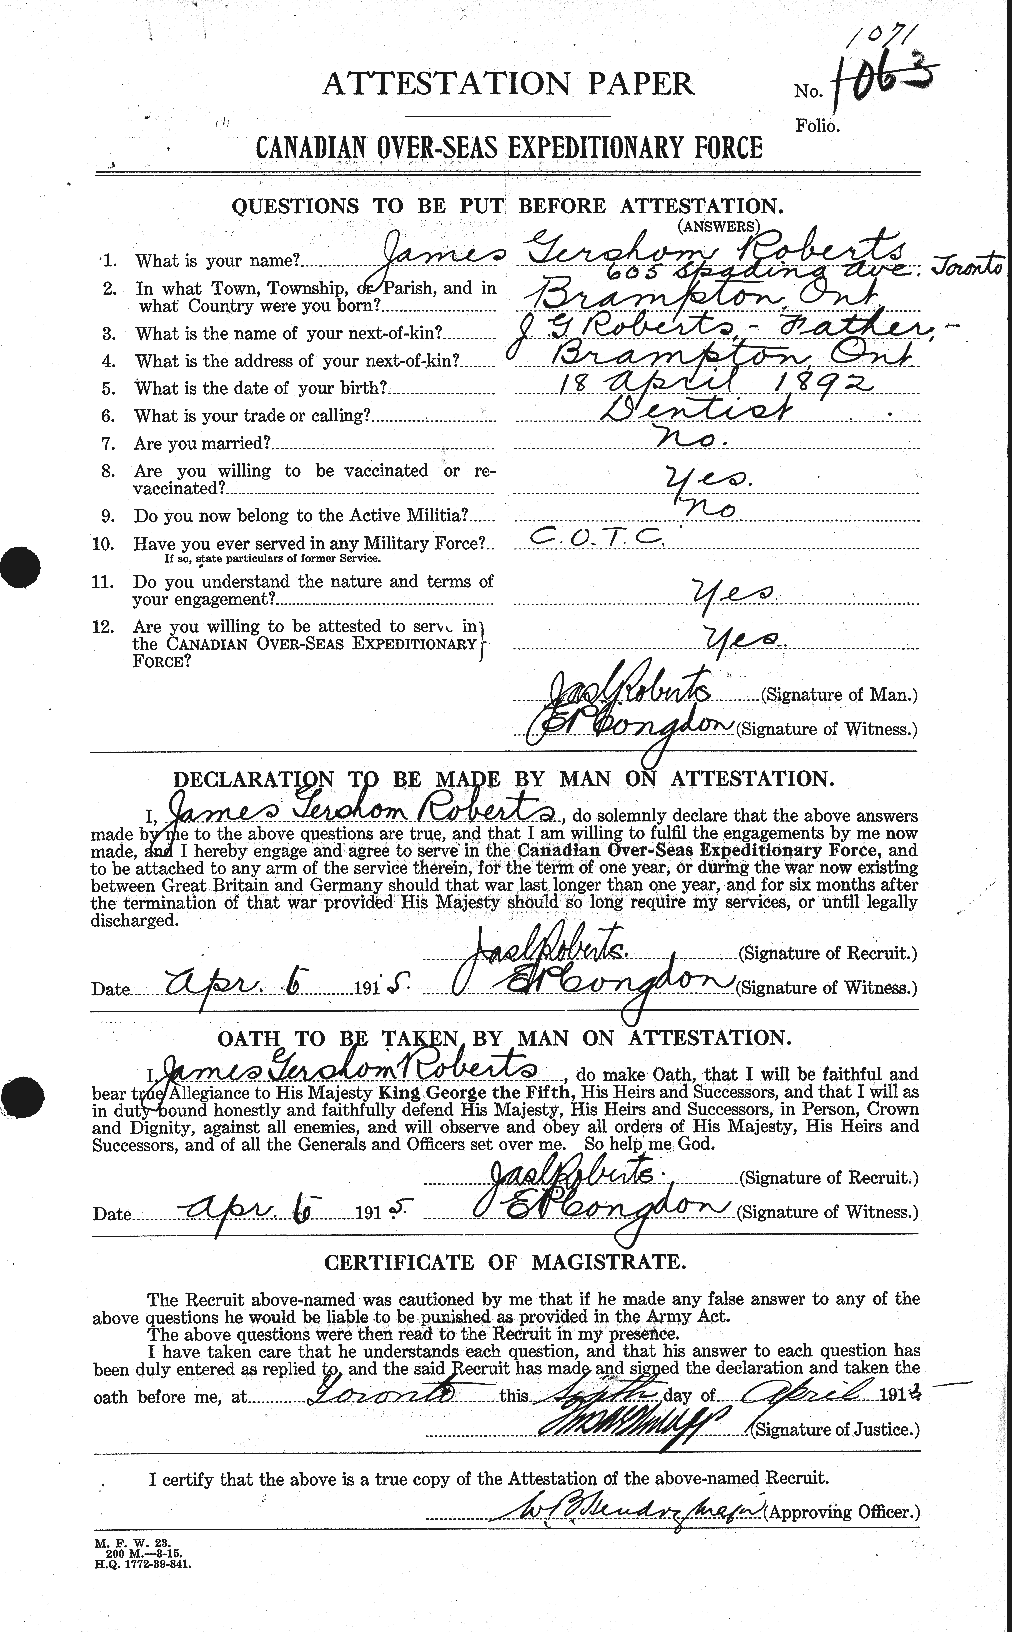 1071
ATTESTATION PAPER
No. 1063
Folio.
CANADIAN OVER-SEAS EXPEDITIONARY FORCE
QUESTIONS TO BE PUT BEFORE ATTESTATION.
(ANSWERS)
1. What is your name? James Gershom Roberts
605 Spadina Ave. Toronto
2. In what Town, Township, or Parish, and in
what Country were you born? Brampton, Ont.
3. What is the name of your next-of-kin? J G Roberts, - Father, -
4. What is the address of your next-of-kin? Brampton, Ont
5. What is the date of your birth? 18 April 1892
6. What is your trade or calling? Dentist
7. Are you married? No.
8. Are you willing to be vaccinated or re-
vaccinated? Yes.
9. Do you now belong to the Active Militia? No
10. Have you ever served in any Military Force? C.O.T.C.
If so, state particulars of former Service.
11. Do you understand the nature and terms of
your engagement? Yes
12. Are you willing to be attested to serve in
the CANADIAN OVER-SEAS EXPEDITIONARY
FORCE? Yes.
Jas G Roberts (Signature of Man.)
E P Congdon (Signature of Witness.)
DECLARATION TO BE MADE BY MAN ON ATTESTATION.
I, James Gershom Roberts, do solemnly declare that the above answers
made by me to the above questions are true, and that I am willing to fulfil the engagements by me now
made, and I hereby engage and agree to serve in the Canadian Over-Seas Expeditionary Force, and
to be attached to any arm of the service therein, for the term of one year, or during the war now existing
between Great Britain and Germany should that war last longer than one year, and for six months after
the termination of that war provided His Majesty should so long require my services, or until legally
discharged.
Jas G Roberts. (Signature of Recruit.)
Date Apr. 6 1915. E P Congdon (Signature of Witness.)
OATH TO BE TAKEN BY MAN ON ATTESTATION.
I, James Gershom Roberts, do make Oath, that I will be faithful and
bear true Allegiance to His Majesty King George the Fifth, His Heirs and Successors, and that I will as
in duty bound honestly and faithfully defend His Majesty, His Heirs and Successors, in Person, Crown
and Dignity, against all enemies, and will observe and obey all orders of His Majesty, His Heirs and
Successors, and of all the Generals and Officers set over me. So help me God.
Jas G Roberts. (Signature of Recruit.)
Date Apr. 6 1915. E P Congdon (Signature of Witness.)
CERTIFICATE OF MAGISTRATE.
The Recruit above-named was cautioned by me that if he made any false answer to any of the
above questions he would be liable to be punished as provided in the Army Act.
The above questions were then read to the Recruit in my presence.
I have taken care that he understands each question, and that his answer to each question has
been duly entered as replied to, and the said Recruit has made and signed the declaration and taken the
oath before me, at Toronto this Sixth day of April 1915
(Signature of Justice.)
I certify that the above is a true copy of the Attestation of the above-named Recruit.
W B Hendry Major (Approving Officer.)
M. F. W. 23.
200 M.—3-15.
H.Q. 1772-39-841.